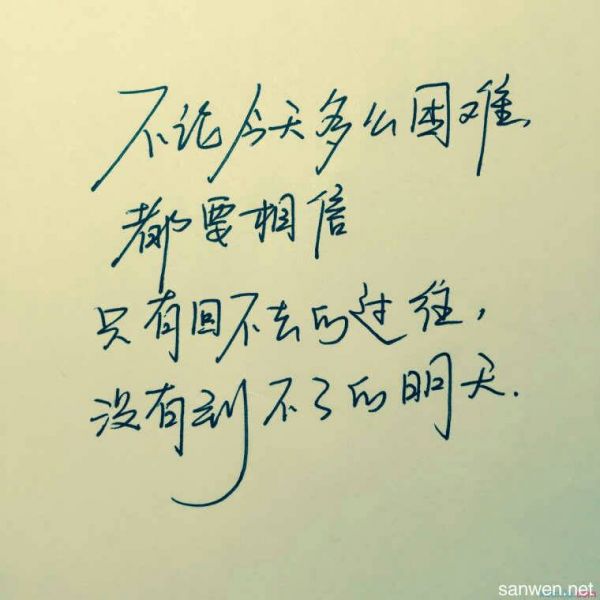 不论今天多么困难,
都要相信
只有回不去的过往,
没有到不了的明天.
sanwen.net